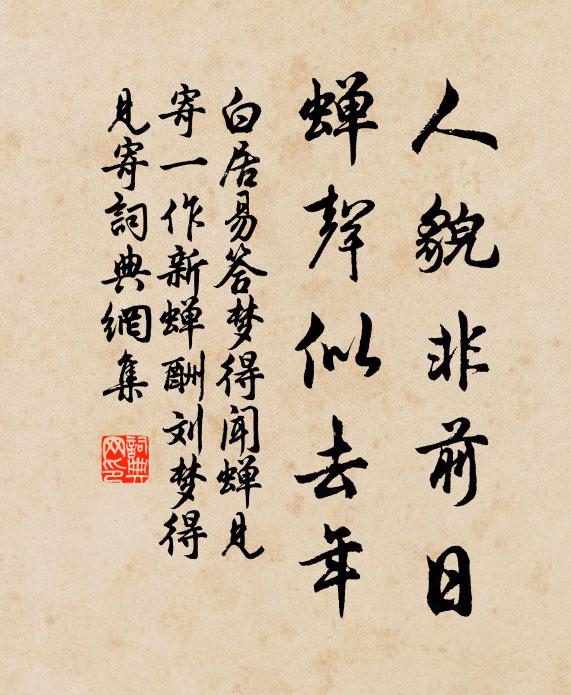 人貌非前日
蝉聲似去年
白居易答梦得闻蝉見
寄一作新蝉酬刘梦得
見寄詞典網集
詞典
网印